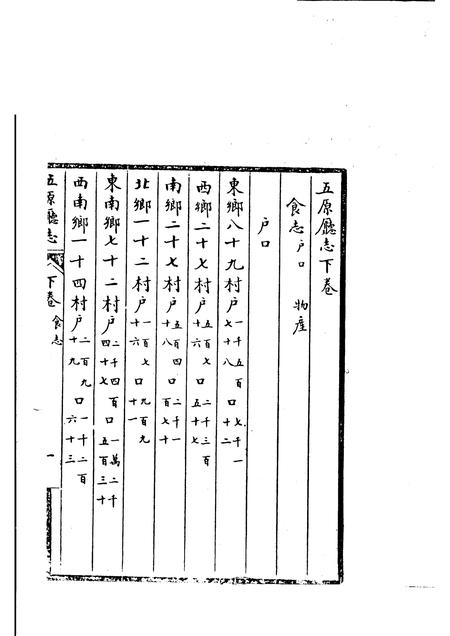 五原廳志下卷
食志 户口 物產
户口
東鄉八十九村户一千五百七十八口七千一十二
西鄉二十七村户五百七十六口二千三百五十七
南鄉二十七村户五百四十八口二千一百七十
北鄉一十二村户一百七十六口九百九十一
東南鄉七十二村户二千四百四十七口一萬二千五百三十
西南鄉一十四村户二百九十九口一千二百六十三
五原廳志 下卷 食志 一